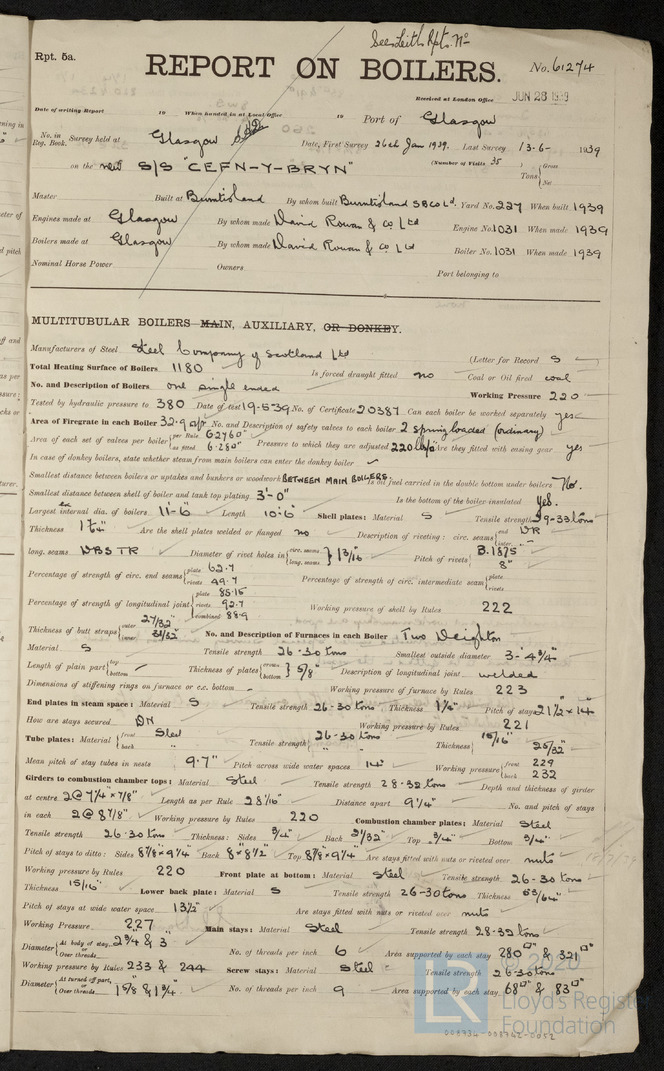 See Leith Rpt. No
Rpt. 5a.
REPORT ON BOILERS.
No. 61274
Received at London Office JUN 28 1939
Date of writing Report 19 When handed in at Local Office 19 Port of Glasgow
No. in Reg. Book. Survey held at Glasgow Date, First Survey 26th Jan 1939. Last Survey 13-6- 1939
on the new S/S "CEFN-Y-BRYN" (Number of Visits 35) Tons Gross Net
Master Built at Burntisland By whom built Burntisland S B Co Ld. Yard No. 227 When built 1939
Engines made at Glasgow By whom made David Rowan & Co Ltd Engine No. 1031 When made 1939
Boilers made at Glasgow By whom made David Rowan & Co Ltd Boiler No. 1031 When made 1939
Nominal Horse Power Owners Port belonging to
MULTITUBULAR BOILERS MAIN, AUXILIARY, OR DONKEY.
Manufacturers of Steel Steel Company of Scotland Ltd (Letter for Record S
Total Heating Surface of Boilers 1180 Is forced draught fitted no Coal or Oil fired coal
No. and Description of Boilers one single ended Working Pressure 220
Tested by hydraulic pressure to 380 Date of test 19-5-39 No. of Certificate 20387 Can each boiler be worked separately yes
Area of Firegrate in each Boiler 32.9 No. and Description of safety valves to each boiler 2 spring loaded (ordinary)
Area of each set of valves per boiler per Rule as fitted 6.280" Pressure to which they are adjusted 220 Are they fitted with easing gear yes
In case of donkey boilers, state whether steam from main boilers can enter the donkey boiler
Smallest distance between boilers or uptakes and bunkers or woodwork BETWEEN MAIN BOILERS. Is oil fuel carried in the double bottom under boilers No.
Smallest distance between shell of boiler and tank top plating 3'-0" Is the bottom of the boiler insulated yes.
Largest internal dia. of boilers 11'-6" Length 10'-6" Shell plates: Material S Tensile strength 29-33 tons
Thickness Are the shell plates welded or flanged no Description of riveting: circ. seams end DR inter. -
long. seams DBS TR Diameter of rivet holes in circ. seams long. seams 1 3/16 Pitch of rivets 8"
Percentage of strength of circ. end seams plate 62.7 rivets 49.7 Percentage of strength of circ. intermediate seam plate rivets
Percentage of strength of longitudinal joint plate 85.15 rivets 92.7 combined 88.9 Working pressure of shell by Rules 222
Thickness of butt straps outer 27/32" inner 31/32" No. and Description of Furnaces in each Boiler Two Deighton
Material S Tensile strength 26-30 tons Smallest outside diameter 3'-4 3/4"
Length of plain part top bottom Thickness of plates crown bottom 5/8" Description of longitudinal joint welded
Dimensions of stiffening rings on furnace or c.c. bottom Working pressure of furnace by Rules 223
End plates in steam space: Material S Tensile strength 26-30 tons Thickness 1 1/8" Pitch of stays 21 1/2 x 14"
How are stays secured DN Working pressure by Rules 221
Tube plates: Material front back Steel " Tensile strength 26-30 tons " " Thickness 15/16" 25/32"
Mean pitch of stay tubes in nests 9.7" Pitch across wide water spaces 14" Working pressure front 229 back 232
Girders to combustion chamber tops: Material Steel Tensile strength 28-32 tons Depth and thickness of girder
at centre 2@ 7 1/4" x 7/8" Length as per Rule 28 1/16" Distance apart 9 1/4" No. and pitch of stays
in each 2@ 8 7/8" Working pressure by Rules 220 Combustion chamber plates: Material Steel
Tensile strength 26-30 tons Thickness: Sides 3/4" Back 21/32" Top 3/4" Bottom 3/4"
Pitch of stays to ditto: Sides 8 7/8 x 9 1/4" Back 8" x 8 1/2" Top 8 7/8" x 9 1/4" Are stays fitted with nuts or riveted over nuts
Working pressure by Rules 220 Front plate at bottom: Material Steel Tensile strength 26-30 tons
Thickness 15/16" Lower back plate: Material S Tensile strength 26-30 tons Thickness 53/64"
Pitch of stays at wide water space 13 1/2" Are stays fitted with nuts or riveted over nuts
Working Pressure 227 Main stays: Material Steel Tensile strength 28-32 tons
Diameter At body of stay, Over threads 2 3/4 & 3" No. of threads per inch 6 Area supported by each stay 280 & 321
Working pressure by Rules 233 & 244 Screw stays: Material Steel Tensile strength 26-30 tons
Diameter At turned off part, Over threads 1 5/8 & 1 3/4" No. of threads per inch 9 Area supported by each stay 68 & 83
© 2020
Lloyd's Register
Foundation
008734-008742-0052